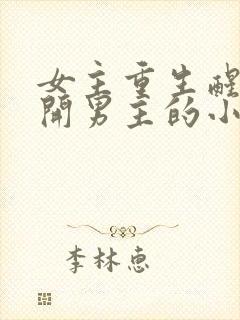 女主重生醒
開男主的小
李林惠